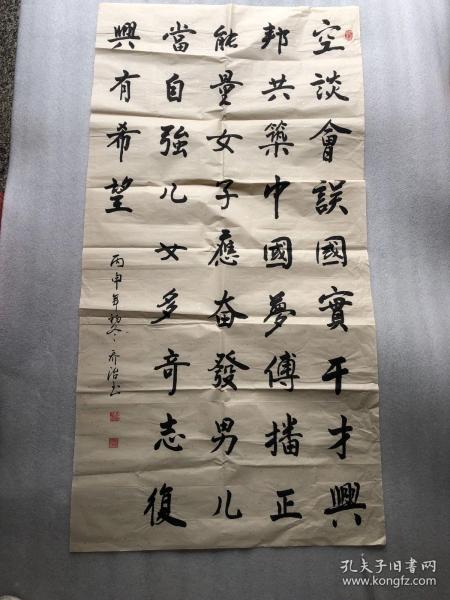 空談會誤國實干才興
邦共築中國夢傳播正
能量女子應奋發男儿
當自強儿女多奇志復
興有希望
丙申年初冬齐治书
孔夫子旧书网
www.kongfz.com